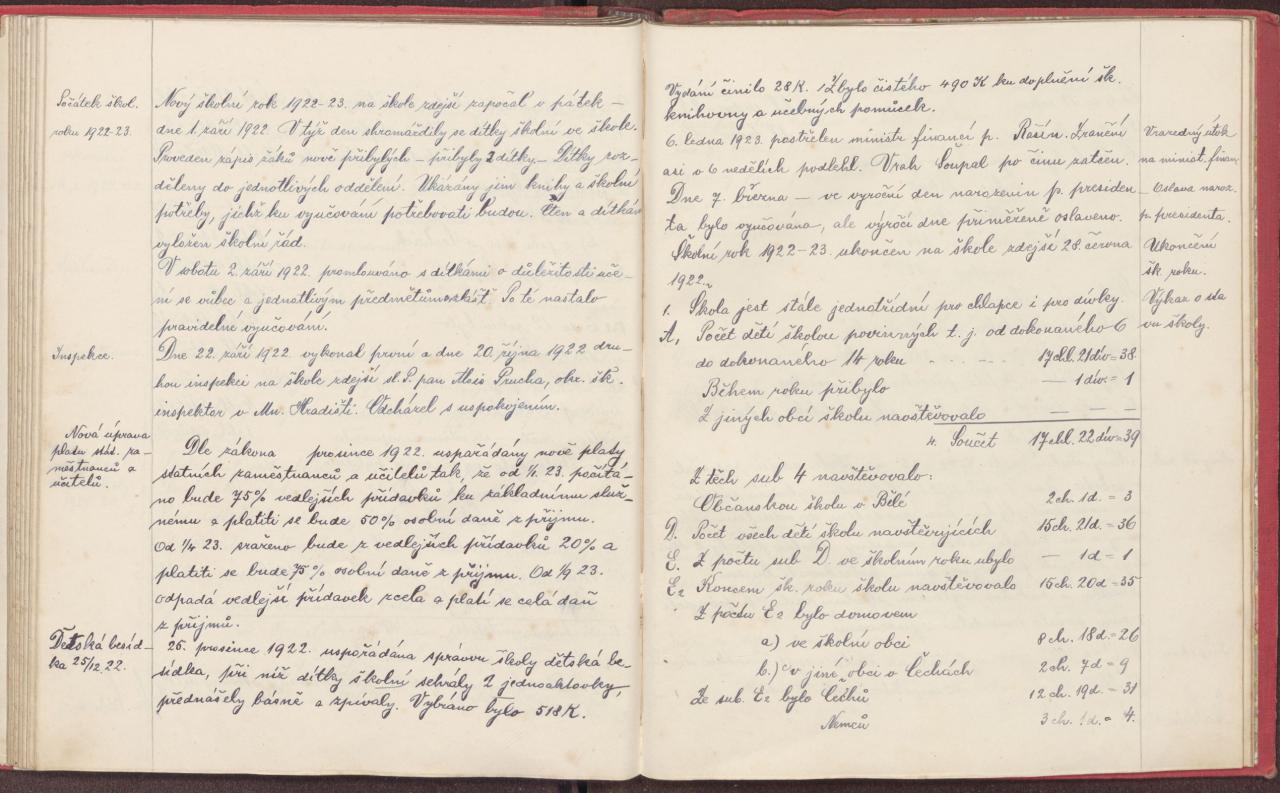 Počátek škol.
roku 1922-23.
Nový školní rok 1922-23. na škole zdejší započal v pátek –
dne 1. září 1922. V týž den shromáždily se dítky školní ve škole.
Proveden zápis žáků nově přibylých – přibyly 2 dítky. – Dítky roz-
děleny do jednotlivých oddělení. Ukázány jim knihy a školní
potřeby, jichž ku vyučování potřebovati budou. Čten a dítkám
vyložen školní řád.
V sobotu 2. září 1922. promlouváno s dítkami o důležitosti uče-
ní se vůbec a jednotlivým předmětům zvlášť. Po té nastalo
pravidelné vyučování.
Inspekce.
Dne 22. září 1922. vykonal první a dne 20. října 1922 dru-
hou inspekci na škole zdejší sl. P. pan Alois Prucha, okr. šk.
inspektor v Mn. Hradišti. Odcházel s uspokojením.
Nová úprava
platu stát. za-
městnanců a
učitelů.
Dle zákona prosince 1922. uspořádány nové platy
státních zaměstnanců a učitelů tak, že od 1/1. 23. počítá-
no bude 75% vedlejších přídavků ku základnímu služ-
nému a platiti se bude 50% osobní daně z příjmu.
Od 1/4 23. sraženo bude z vedlejších přídavků 20% a
platiti se bude 75% osobní daně z příjmu. Od 1/9 23.
odpadá vedlejší přídavek zcela a platí se celá daň
z příjmů.
Dětská besíd-
ka 25/12. 22.
25. prosince 1922. uspořádána správou školy dětská be-
sídka, při níž dítky školní sehrály 2 jednoaktovky,
přednášely básně a zpívaly. Vybráno bylo 518 K.
Vydání činilo 28 K. Zbylo čistého 490 K ku doplnění šk.
knihovny a učebných pomůcek.
6. ledna 1923. postřelen ministr financí p. Rašín. Zranění
asi o 6 nedělích podlehl. Vrah Šoupal po činu zatčen.
Vražedný útok
na minist. finan.
Dne 7. března – ve výroční den narozenin p. presiden-
ta bylo vyučováno, ale výročí dne přiměřeně oslaveno.
Oslava naroz.
p. presidenta.
Školní rok 1922-23. ukončen na škole zdejší 28. června
1922.
Ukončení
šk. roku.
1. Škola jest stále jednotřídní pro chlapce i pro dívky.
Výkaz o sta
vu školy.
A, Počet dětí školou povinných t. j. od dokonaného 6
do dokonaného 14 roku . . . . . 17 chl. 21 dív = 38
Během roku přibylo — 1 dív. = 1
Z jiných obcí školu navštěvovalo — — —
4. Součet 17 chl. 22 dív = 39
Z těch sub 4 navštěvovalo:
Občanskou školu v Bělé 2 ch. 1 d. = 3
D. Počet všech dětí školu navštěvujících 15 ch. 21 d. = 36
E. Z počtu sub D. ve školním roku ubylo — 1 d = 1
E2 Koncem šk. roku školu navštěvovalo 15 ch. 20 d = 35
Z počtu E2 bylo domovem
a) ve školní obci 8 ch. 18 d. = 26
b.) v jiné obci v Čechách 2 ch. 7 d = 9
Ze sub. E2 bylo Čechů 12 ch. 19 d. = 31
Němců 3 ch. 1 d. = 4.